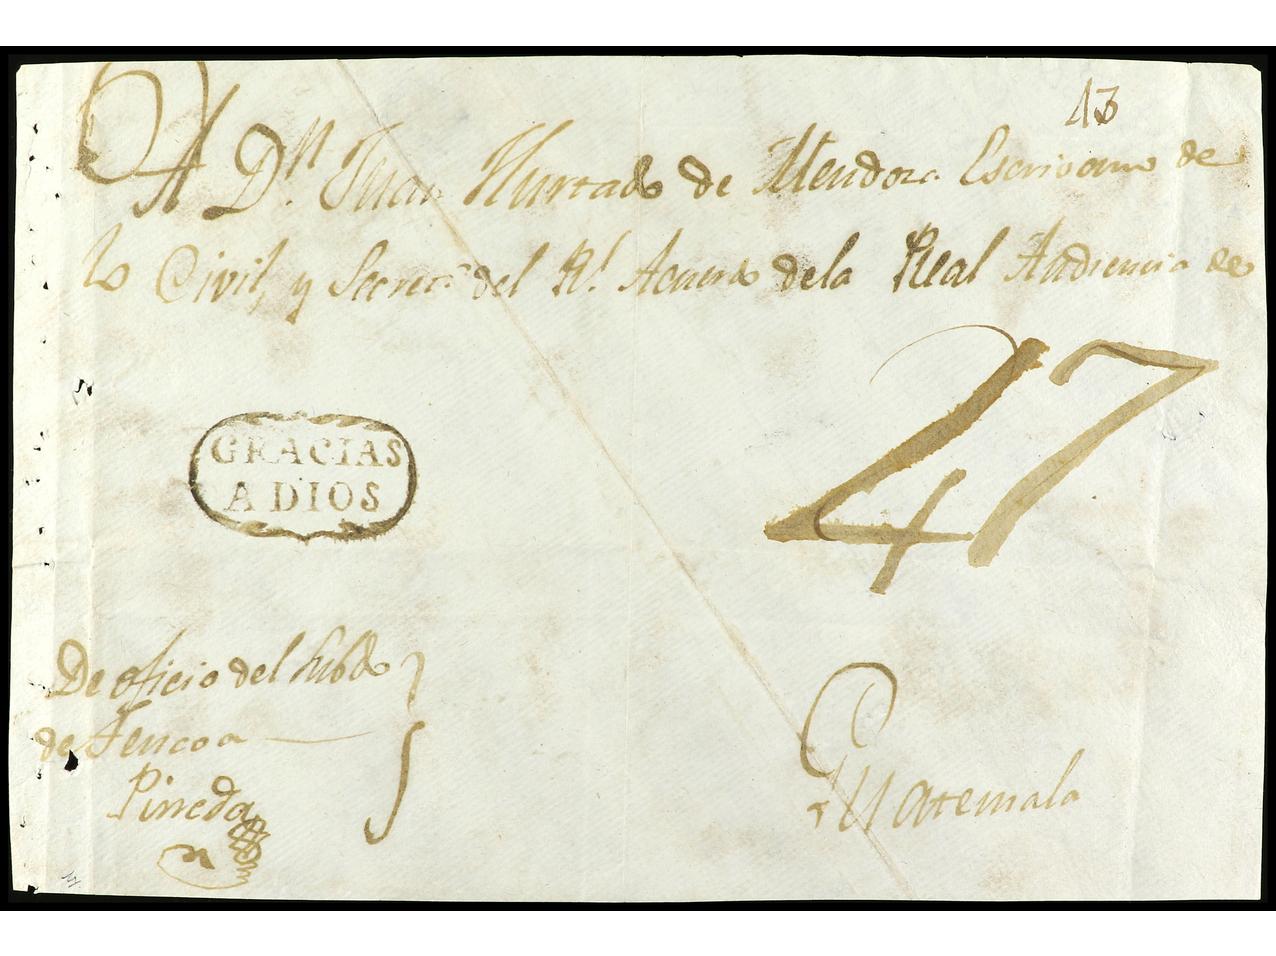 13
A Dn. Juan Hurtado de Mendoza Escrivano de
lo Civil, y Secreto. del Rl. Acuerdo dela Real Audiencia de
GRACIAS
A DIOS
47
De oficio del Subdo
de Tencoa
Pineda
Guatemala